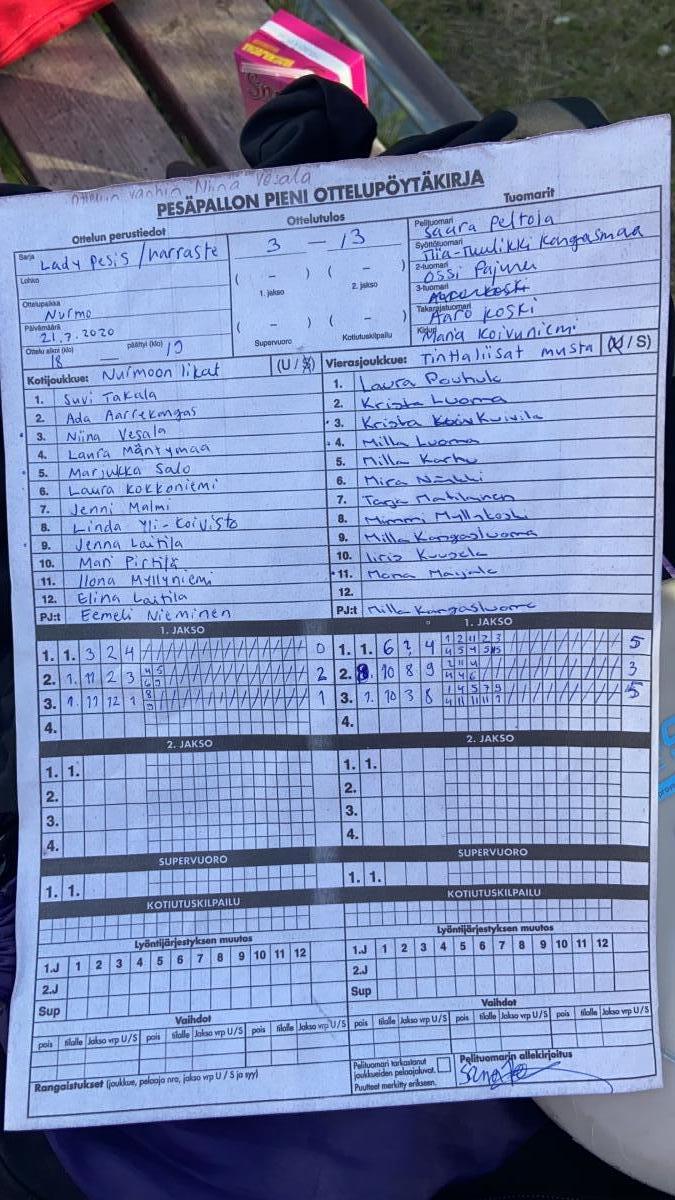 Ottelun vanhin Niina Vesala
PESÄPALLON PIENI OTTELUPÖYTÄKIRJA
Ottelun perustiedot
Ottelutulos
Tuomarit
Sarja
Lady Pesis / harraste
Lohko
Ottelupaikka
Nurmo
Päivämäärä
21.7.2020
Ottelu alkoi (klo) päättyi (klo)
18 19
3 - 13
( - ) ( - )
1. jakso 2. jakso
( - ) ( - )
Supervuoro Kotiutuskilpailu
Pelituomari
Saara Peltola
Syöttötuomari
Tiia-Tuulikki Kangasmaa
2-tuomari
Ossi Pajunen
3-tuomari
Takarajatuomari
Aaro Koski
Kirjuri
Maria Koivuniemi
Kotijoukkue: Nurmoon likat (U / S)
1. Suvi Takala
2. Ada Aarrekangas
3. Niina Vesala
4. Laura Mäntymaa
5. Marjukka Salo
6. Laura Kokkoniemi
7. Jenni Malmi
8. Linda Yli-Koivisto
9. Jenna Laitila
10. Mari Pirtilä
11. Ilona Myllyniemi
12. Elina Laitila
PJ:t Eemeli Nieminen
Vierasjoukkue: Tinttaliisat musta (U / S)
1. Laura
2. Krista Luoma
3. Krista Kuivila
4. Milla Luoma
5. Milla Karhu
6. Mira
7. Tarja Matilainen
8. Mimmi Myllykoski
9. Milla Kangasluoma
10. Iiris Kuusela
11. Mona
12.
PJ:t Milla Kangasluoma
1. JAKSO
1. 1. 3 2 4 0
2. 1. 11 2 3 4 5 2
6 7
3. 1. 11 12 1 8 1
4.
1. JAKSO
1. 1. 6 2 4 1 2 11 2 3 5
2. 8. 10 8 9 2 11 4 3
4 4 6
3. 1. 10 3 8 1 4 5 7 9 5
4.
2. JAKSO
1. 1.
2.
3.
4.
2. JAKSO
1. 1.
2.
3.
4.
SUPERVUORO
1. 1.
SUPERVUORO
1. 1.
KOTIUTUSKILPAILU
KOTIUTUSKILPAILU
Lyöntijärjestyksen muutos
1.J 1 2 3 4 5 6 7 8 9 10 11 12
2.J
Sup
Lyöntijärjestyksen muutos
1.J 1 2 3 4 5 6 7 8 9 10 11 12
2.J
Sup
Vaihdot
pois tilalle Jakso vrp U/S pois tilalle Jakso vrp U/S pois tilalle Jakso vrp U/S
Vaihdot
pois tilalle Jakso vrp U/S pois tilalle Jakso vrp U/S pois tilalle Jakso vrp U/S
Rangaistukset (joukkue, pelaaja nro, jakso vrp U / S ja syy)
Pelituomari tarkastanut
joukkueiden pelaajaluvat.
Puutteet merkitty erikseen.
Pelituomarin allekirjoitus